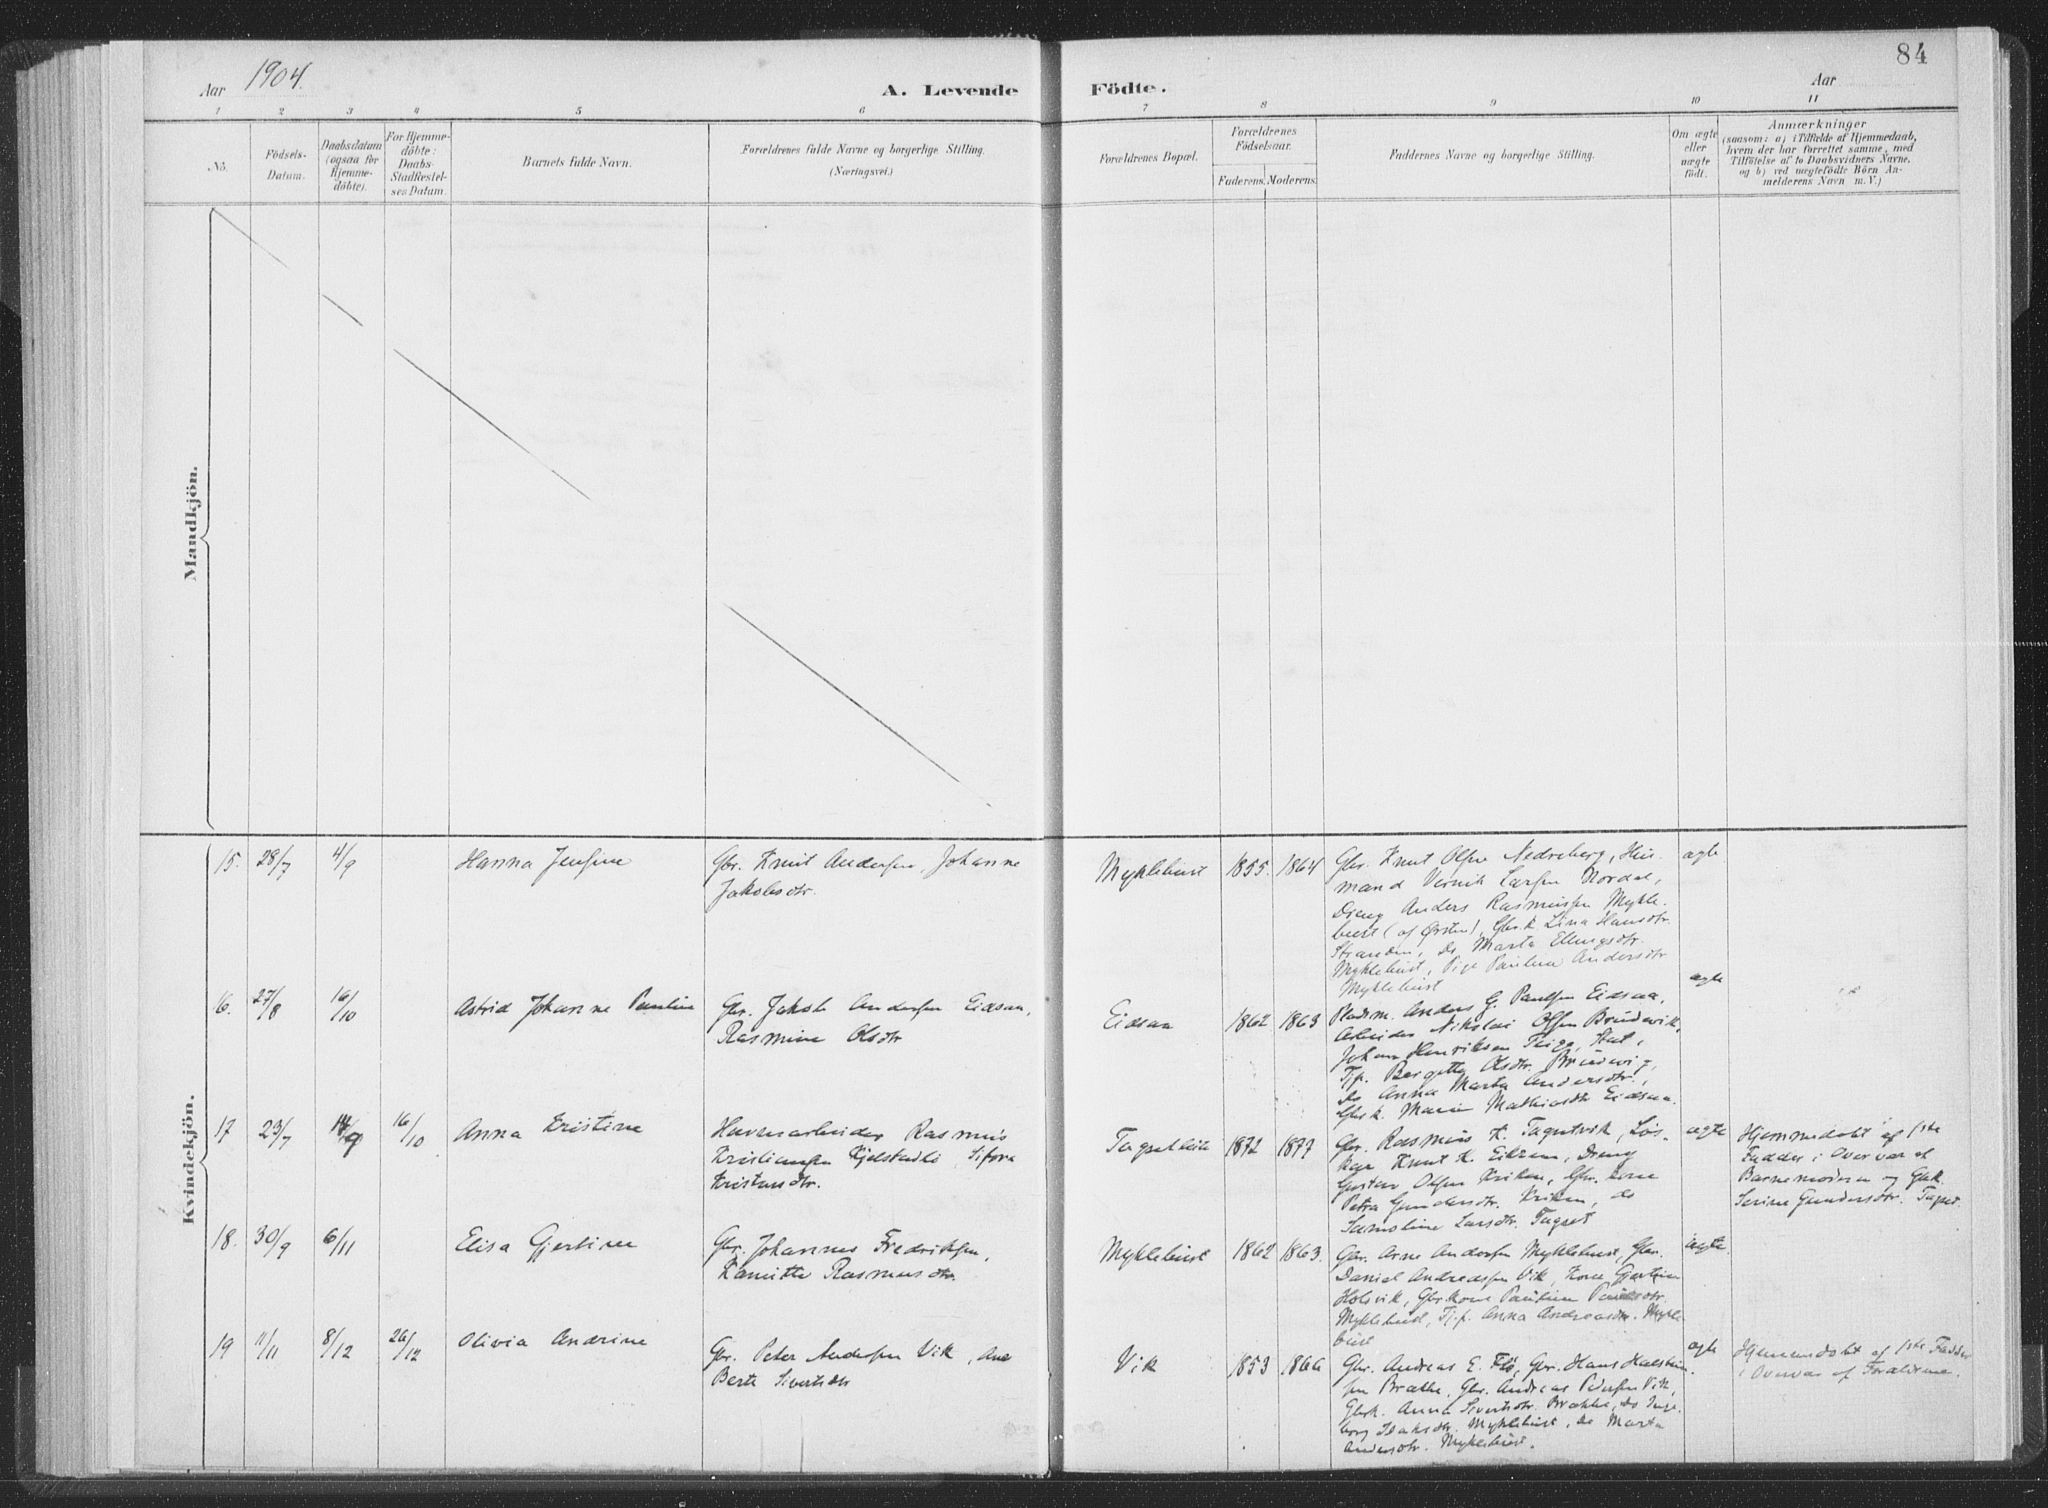 84
Aar 1904.
A. Levende Födte.
Aar
1 2 3 4 5 6 7 8 9 10 11
No.
Födsels-
Datum.
Daabsdatum
(ogsaa for
Hjemme-
döbte).
For Hjemme-
döbte:
Daabs-
Stadfestel-
ses Datum.
Barnets fulde Navn.
Forældrenes fulde Navne og borgerlige Stilling.
(Næringsvei.)
Forældrenes Bopæl.
Forældrenes
Födselsaar.
Faderens. Moderens.
Faddernes Navne og borgerlige Stilling.
Om ægte
eller
uægte
födt.
Anmærkninger
(saasom: a) i Tilfælde af Hjemmedaab,
hvem der har forrettet samme, med
Tilföielse af to Daabsvidners Navne,
og b) ved uægtefödte Börn An-
melderens Navn m. V.)
Mandkjön.
Kvindekjön.
15. 28/7 4/9
Hanna Jensine
Gbr. Knut Andersen, Johanne
Jakobsdtr.
Myklebust 1855. 1864
Gbr. Knut Olsen Nedreberg, Hus-
mand Vernik Larsen Nordal,
Dreng Anders Rasmussen Mykle-
bust (af Ørsten), Gbr.k. Lina Hansdtr.
Stranden, do Marta Ellingsdtr.
Myklebust, Pige Pauline Andersdtr
Myklebust
ægte
16. 27/8 16/10
Astrid Johanne Pauline
Gbr. Jakob Andersen Eidsaa,
Rasmine Olsdtr
Eidsaa 1862 1863
Pladsm. Anders G. Paulsen Eidsaa,
Arbeider Nikolai Olsen Brudevik,
Johan Henriksen
Tjp. Bergitta Olsdtr. Brudevig,
do Anna Marta Andersdtr.,
Gbr.k. Marie Mathiasdtr Eidsaa.
ægte
17 23/7 16/10
Anna Kristine
Havnearbeider Rasmus
Kristiansen Kjelstadli, Sifora
Kristensdtr.
1872 1877
Gbr. Rasmus K. Tagsetvik, Løs-
kar Knut K. Eiksem, Dreng
Gustav Olsen Kriken, Gbr. kone
Petra Gundersdtr. Kriken, do
Samoline Larsdtr. Tagset
ægte
Hjemmedøbt af 1ste
Fadder i Overvær af
Barnemoderen og Gbk.
Serine Gundersdtr. Tagset.
18. 30/9 6/11
Elisa Gjertine
Gbr. Johannes Fredriksen,
Kamitte Rasmusdtr.
Myklebust 1862 1863.
Gbr. Arne Andersen Myklebust, Gbr.
Daniel Andreassen Vik, Kone Gjertine
Holsvik, Gbr.kone Pauline Paulsdtr.
Myklebust, Tj.p. Anna Andreasdtr. Mykle-
bust
ægte.
19 11/11 8/12 26/12
Olivia Andrine
Gbr. Peter Andersen Vik, Ane
Berte Sivertsdtr
Vik 1853 1866
Gbr. Andreas E. Flø, Gbr. Hans Halstein-
sen Brække, Gbr. Andreas Pedersen Vik,
Gbrk. Anna Sivertsdtr. Brække, do Inge-
borg Isaksdtr. Myklebust, do Marta
Andersdtr. Myklebust.
ægte
Hjemmedøbt af 1ste Fadder
i Overvær af Forældrene.